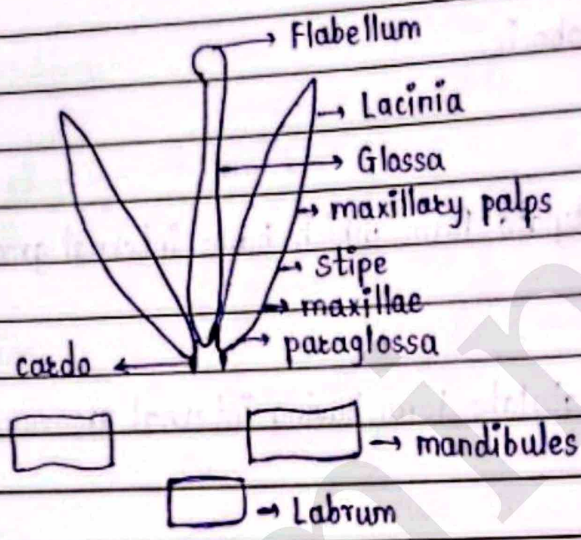 Flabellum
Lacinia
Glossa
maxillary palps
stipe
maxillae
paraglossa
cardo
mandibules
Labrum